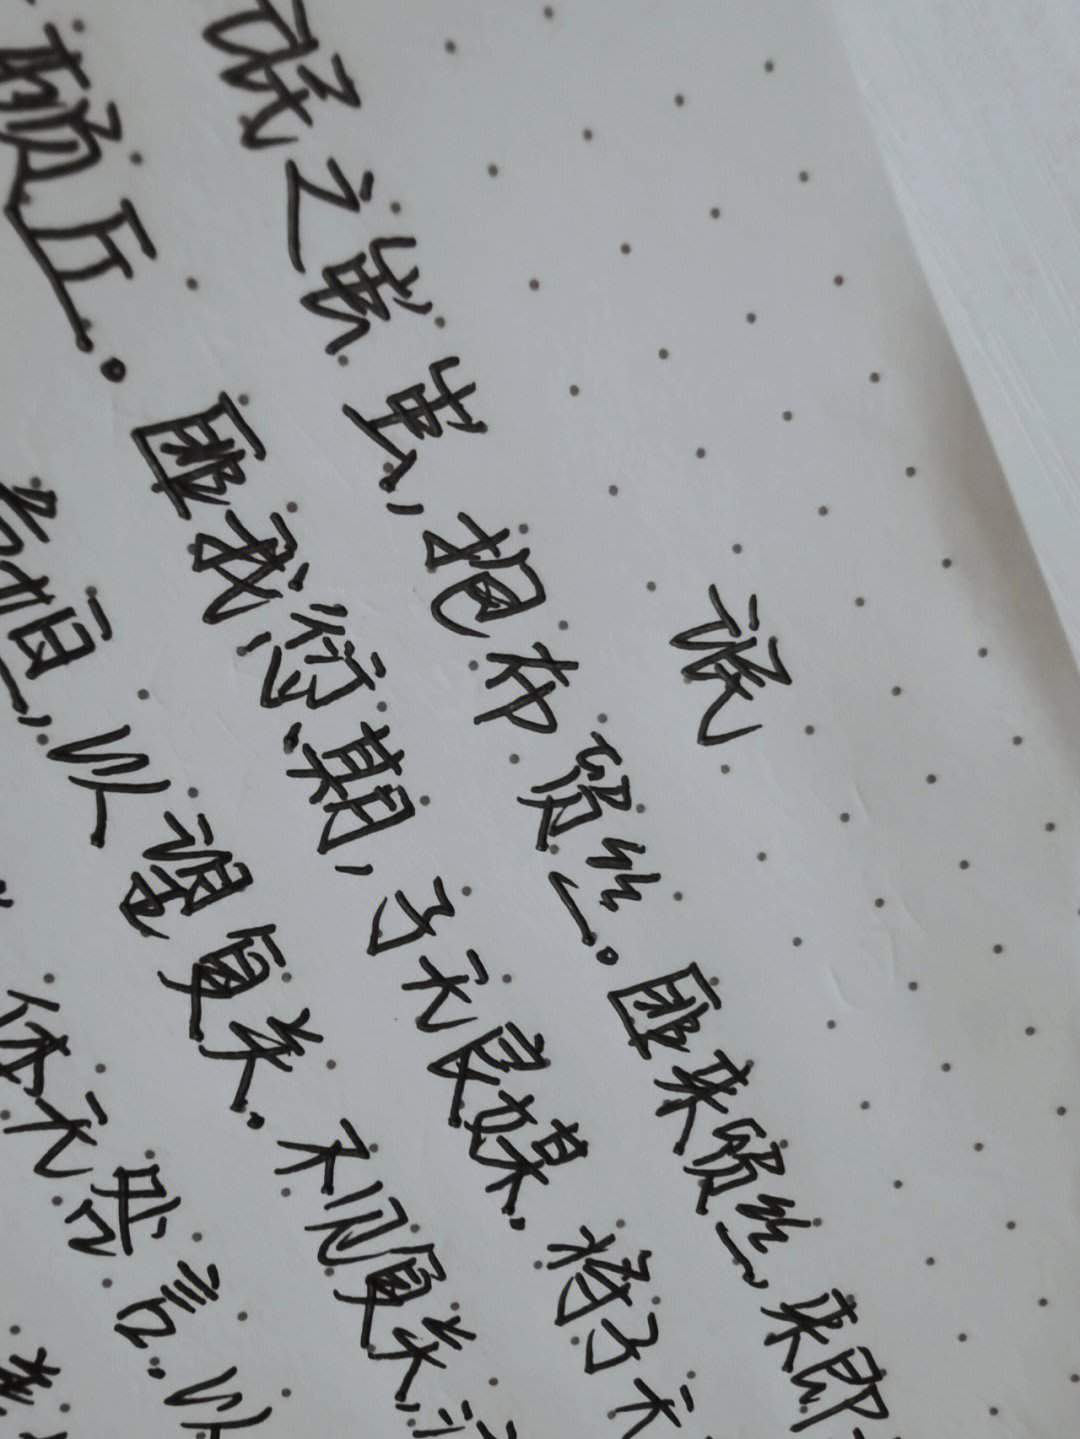 氓
氓之蚩蚩,抱布贸丝。匪来贸丝,来即
顿丘。匪我愆期,子无良媒。将子无
垣,以望复关。不见复关,
体无咎言。以